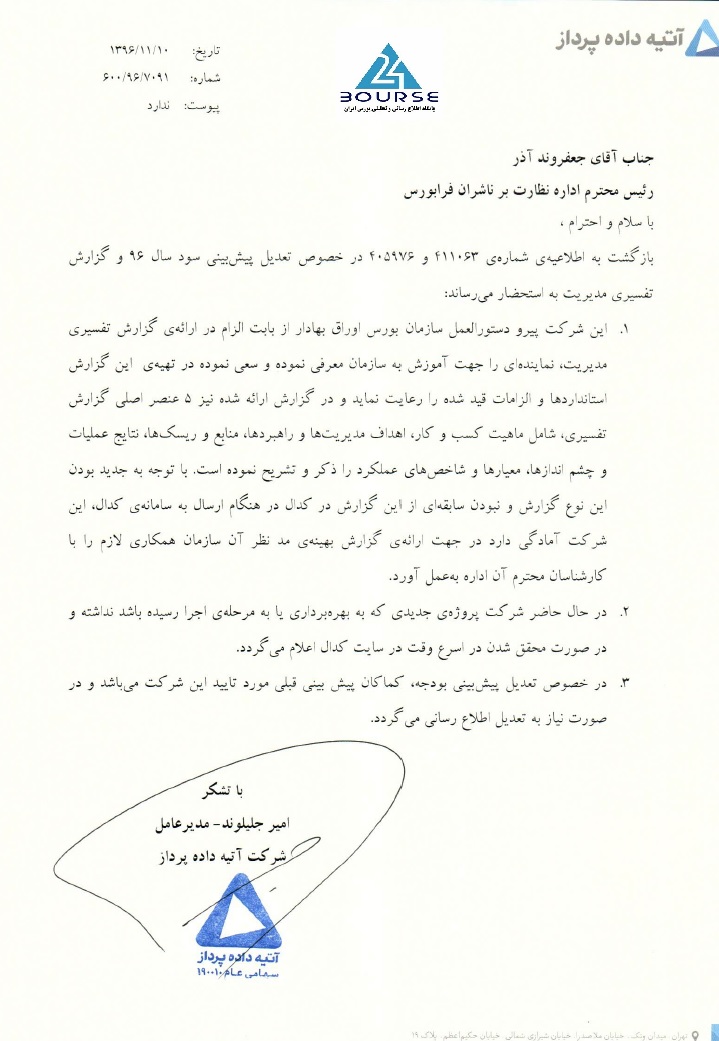 آتیه داده پرداز
تاریخ: ۱۳۹۶/۱۱/۱۰
شماره: ۶۰۰/۹۶/۷۰۹۱
پیوست: ندارد
24
BOURSE
پایگاه اطلاع رسانی و تحلیلی بورس ایران
جناب آقای جعفروند آذر
رئیس محترم اداره نظارت بر ناشران فرابورس
با سلام و احترام ،
بازگشت به اطلاعیه‌ی شماره‌ی ۴۱۱۰۶۳ و ۴۰۵۹۷۶ در خصوص تعدیل پیش‌بینی سود سال ۹۶ و گزارش
تفسیری مدیریت به استحضار می‌رساند:
۱. این شرکت پیرو دستورالعمل سازمان بورس اوراق بهادار از بابت الزام در ارائه‌ی گزارش تفسیری
مدیریت، نماینده‌ای را جهت آموزش به سازمان معرفی نموده و سعی نموده در تهیه‌ی این گزارش
استانداردها و الزامات قید شده را رعایت نماید و در گزارش ارائه شده نیز ۵ عنصر اصلی گزارش
تفسیری، شامل ماهیت کسب و کار، اهداف مدیریت‌ها و راهبردها، منابع و ریسک‌ها، نتایج عملیات
و چشم اندازها، معیارها و شاخص‌های عملکرد را ذکر و تشریح نموده است. با توجه به جدید بودن
این نوع گزارش و نبودن سابقه‌ای از این گزارش در کدال در هنگام ارسال به سامانه‌ی کدال، این
شرکت آمادگی دارد در جهت ارائه‌ی گزارش بهینه‌ی مد نظر آن سازمان همکاری لازم را با
کارشناسان محترم آن اداره به‌عمل آورد.
۲. در حال حاضر شرکت پروژه‌ی جدیدی که به بهره‌برداری یا به مرحله‌ی اجرا رسیده باشد نداشته و
در صورت محقق شدن در اسرع وقت در سایت کدال اعلام می‌گردد.
۳. در خصوص تعدیل پیش‌بینی بودجه، کماکان پیش بینی قبلی مورد تایید این شرکت می‌باشد و در
صورت نیاز به تعدیل اطلاع رسانی می‌گردد.
با تشکر
امیر جلیلوند- مدیرعامل
شرکت آتیه داده پرداز
آتیه داده پرداز
سهامی عام ۱۹۰۰۱۰
تهران، میدان ونک، خیابان ملاصدرا، خیابان شیرازی شمالی، خیابان حکیم‌اعظم، پلاک ۱۹